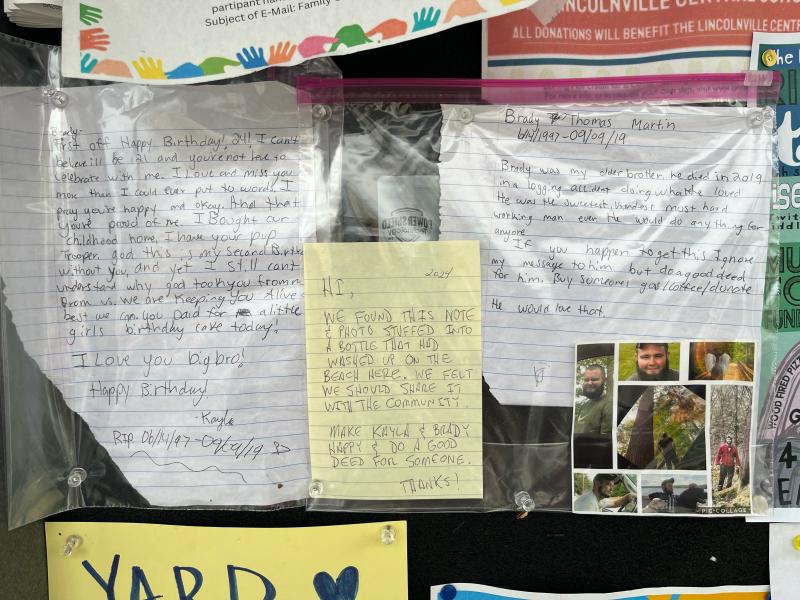 partipant nam
Subject of E-Mail: Family
LINCOLNVILLE CENTRAL
ALL DONATIONS WILL BENEFIT THE LINCOLNVILLE CENTR
Brady-
First off Happy Birthday! 24! I can't
believe ill be 21 and you're not here to
celebrate with me. I love and miss you
more than I could ever put to words. I
pray you're happy and okay. And that
You're proud of me. I bought our
childhood home, I have your pup
Trooper. god this is my second Birthd
without you, and yet I still can't
understand why god took you from
from us. we are keeping you alive
best we can. you paid for a little
girls birthday cake today!
I Love you big bro!
Happy Birthday!
-Kayla
RIP 06/14/97-09/09/19
Brady Thomas Martin
6/14/1997-09/09/19
Brady was my older brother. He died in 2019
in a logging accident doing what he loved
He was the sweetest, kindest most hard
working man ever. He would do anything for
anyone.
If you happen to get this Ignore
my message to him but do a good deed
for him. Buy someones gas/coffee/donate
He would love that.
POWER SHIELD
2024
HI,
WE FOUND THIS NOTE
& PHOTO STUFFED INTO
A BOTTLE THAT HAD
WASHED UP ON THE
BEACH HERE. WE FELT
WE SHOULD SHARE IT
WITH THE COMMUNITY.
MAKE KAYLA & BRADY
HAPPY & DO A GOOD
DEED FOR SOMEONE.
THANKS!
PIC•COLLAGE
WOOD FIRED PIZZ
YARD